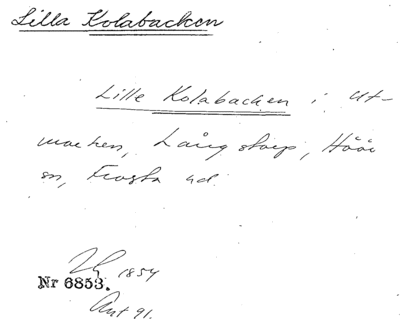 Lilla Kolabacken
Lille Kolabacken i Ut-
marken, Långstorp, Höörs
sn, Frosta hd.
1854
Nr 6853.
Ant 91.